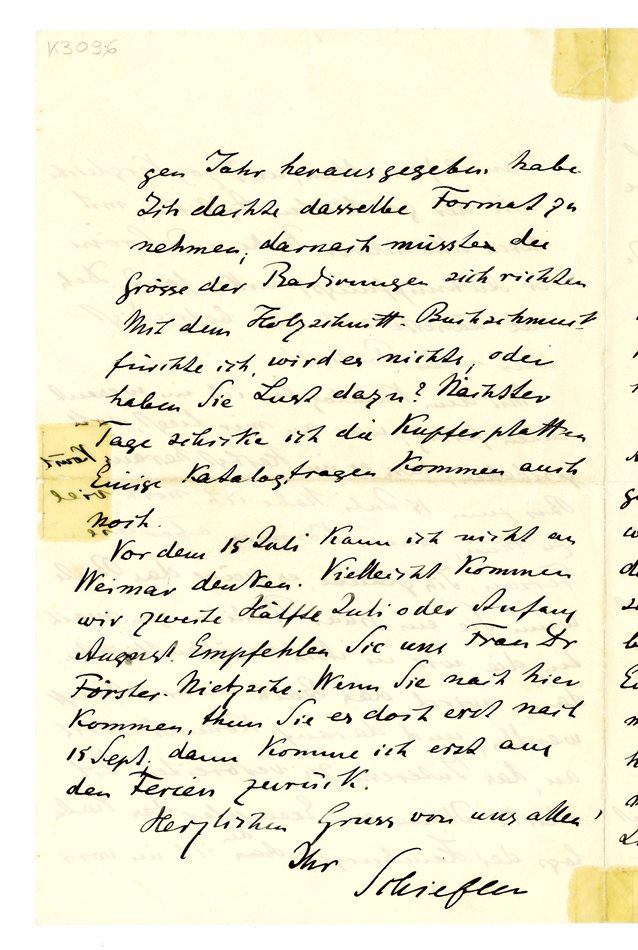 K3096
gen Jahr herausgegeben habe.
Ich dachte dasselbe Format zu
nehmen, darnach müssten die
Grösse der Radirungen sich richten
Mit dem Holzschnitt-Buchschmuck
fürchte ich, wird es nichts, oder
haben Sie Lust dazu? Nächster
Tage schicke ich die Kupferplatten
Einige Katalogfragen kommen auch
noch.
Vor dem 15 Juli kann ich nicht an
Weimar denken. Vielleicht kommen
wir zweite Hälfte Juli oder Anfang
August. Empfehlen Sie uns Frau Dr
Förster-Nietzsche. Wenn Sie nach hier
kommen, thun Sie es doch erst nach
15 Sept, dann komme ich erst aus
den Ferien zurück.
Herzlichen Gruss von uns allen!
Ihr
Schiefler